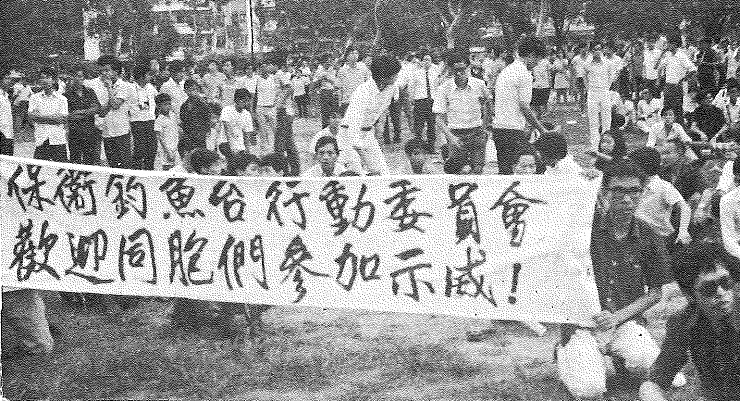 保衛釣魚台行動委員會
歡迎同胞們參加示威！